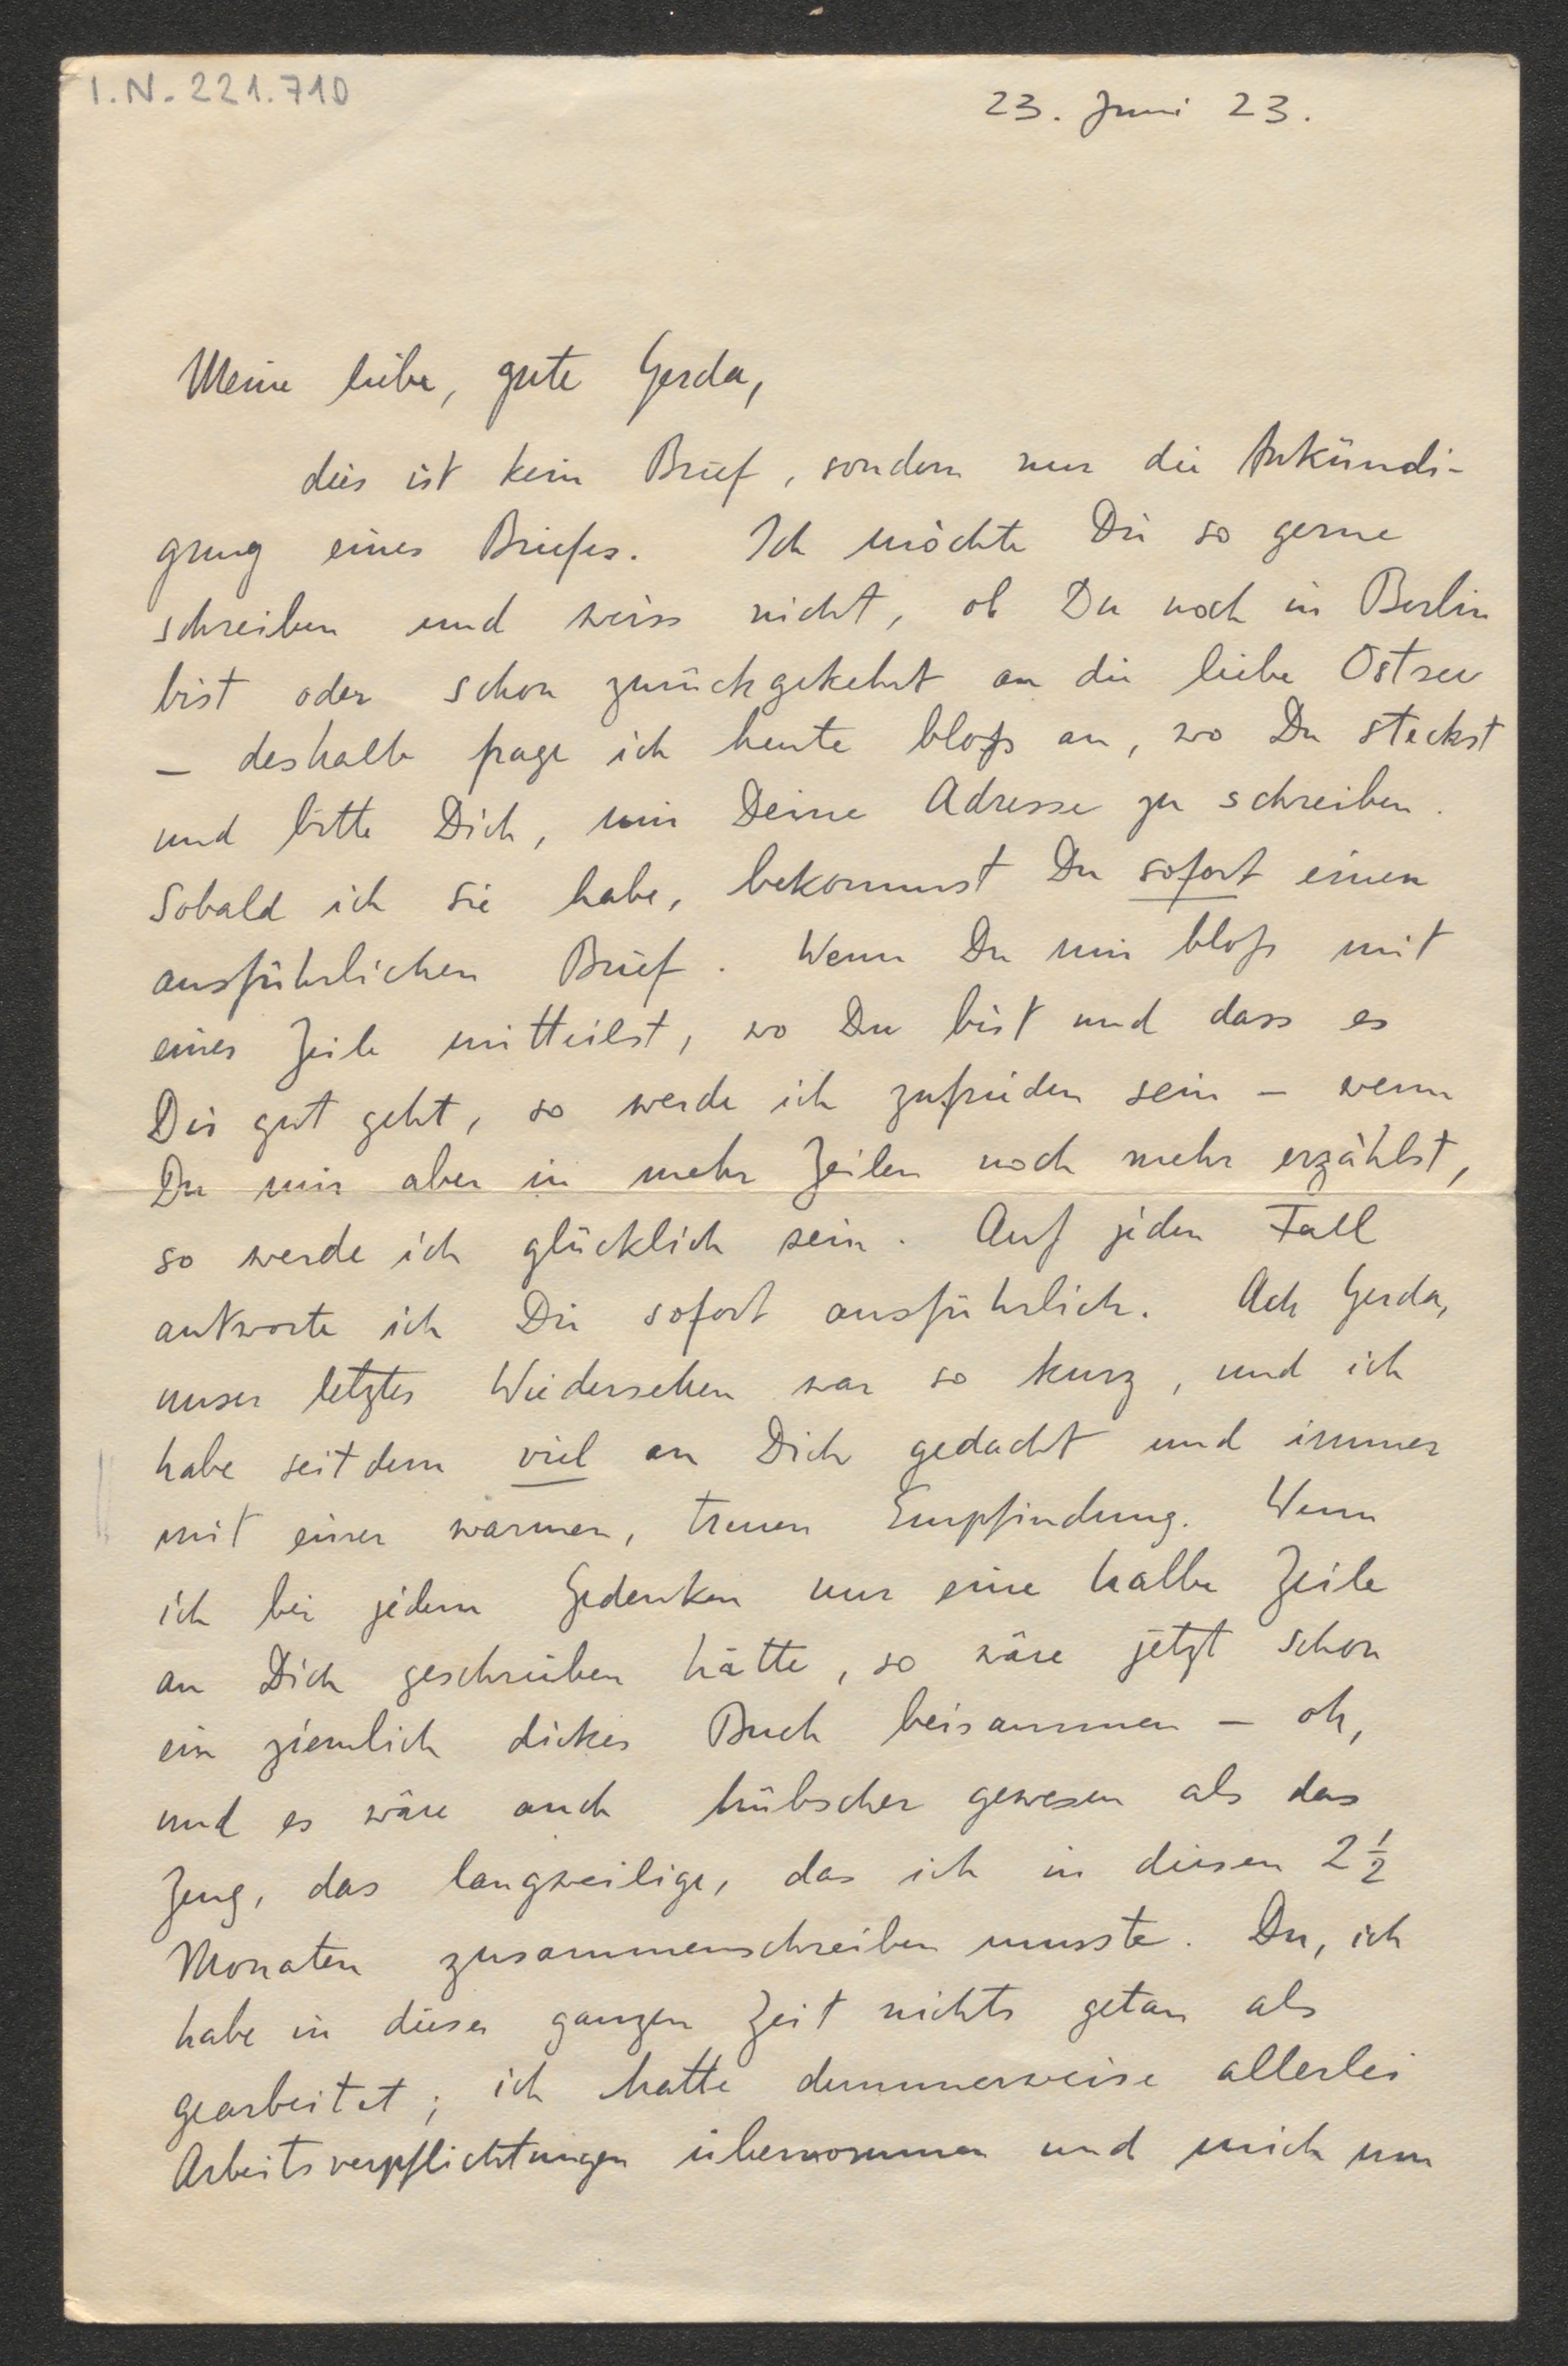 I.N. 221.710
23. Juni 23.
Meine liebe, gute Gerda,
dies ist kein Brief, sondern nur die Ankündi-
gung eines Briefes. Ich möchte Dir so gerne
schreiben und weiss nicht, ob Du noch in Berlin
bist oder schon zurückgekehrt an die liebe Ostsee
– deshalb frage ich heute bloß an, wo Du steckst
und bitte Dich, mir Deine Adresse zu schreiben.
Sobald ich sie habe, bekommst Du sofort einen
ausführlichen Brief. Wenn Du mir bloß mit
einer Zeile mitteilst, wo Du bist und dass es
Dir gut geht, so werde ich zufrieden sein – wenn
Du mir aber in mehr Zeilen noch mehr erzählst,
so werde ich glücklich sein. Auf jeden Fall
antworte ich Dir sofort ausführlich. Ach Gerda,
unser letztes Wiedersehen war so kurz, und ich
habe seitdem viel an Dich gedacht und immer
mit einer warmen, treuen Empfindung. Wenn
ich bei jedem Gedenken nur eine halbe Zeile
an Dich geschrieben hätte, so wäre jetzt schon
ein ziemlich dickes Buch beisammen – oh,
und es wäre auch hübscher gewesen als das
Zeug, das langweilige, das ich in diesen 2½
Monaten zusammenschreiben musste. Du, ich
habe in dieser ganzen Zeit nichts getan als
gearbeitet; ich hatte dummerweise allerlei
Arbeitsverpflichtungen übernommen und mich um